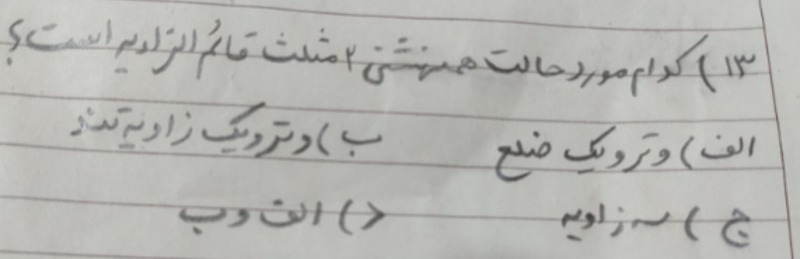 ۱۳) کدام مورد حالت همنهشتی ۲ مثلث قائم الزاویه است؟
الف) وتر و یک ضلع ب) وتر و یک زاویه تند
ج) سه زاویه د) الف و ب